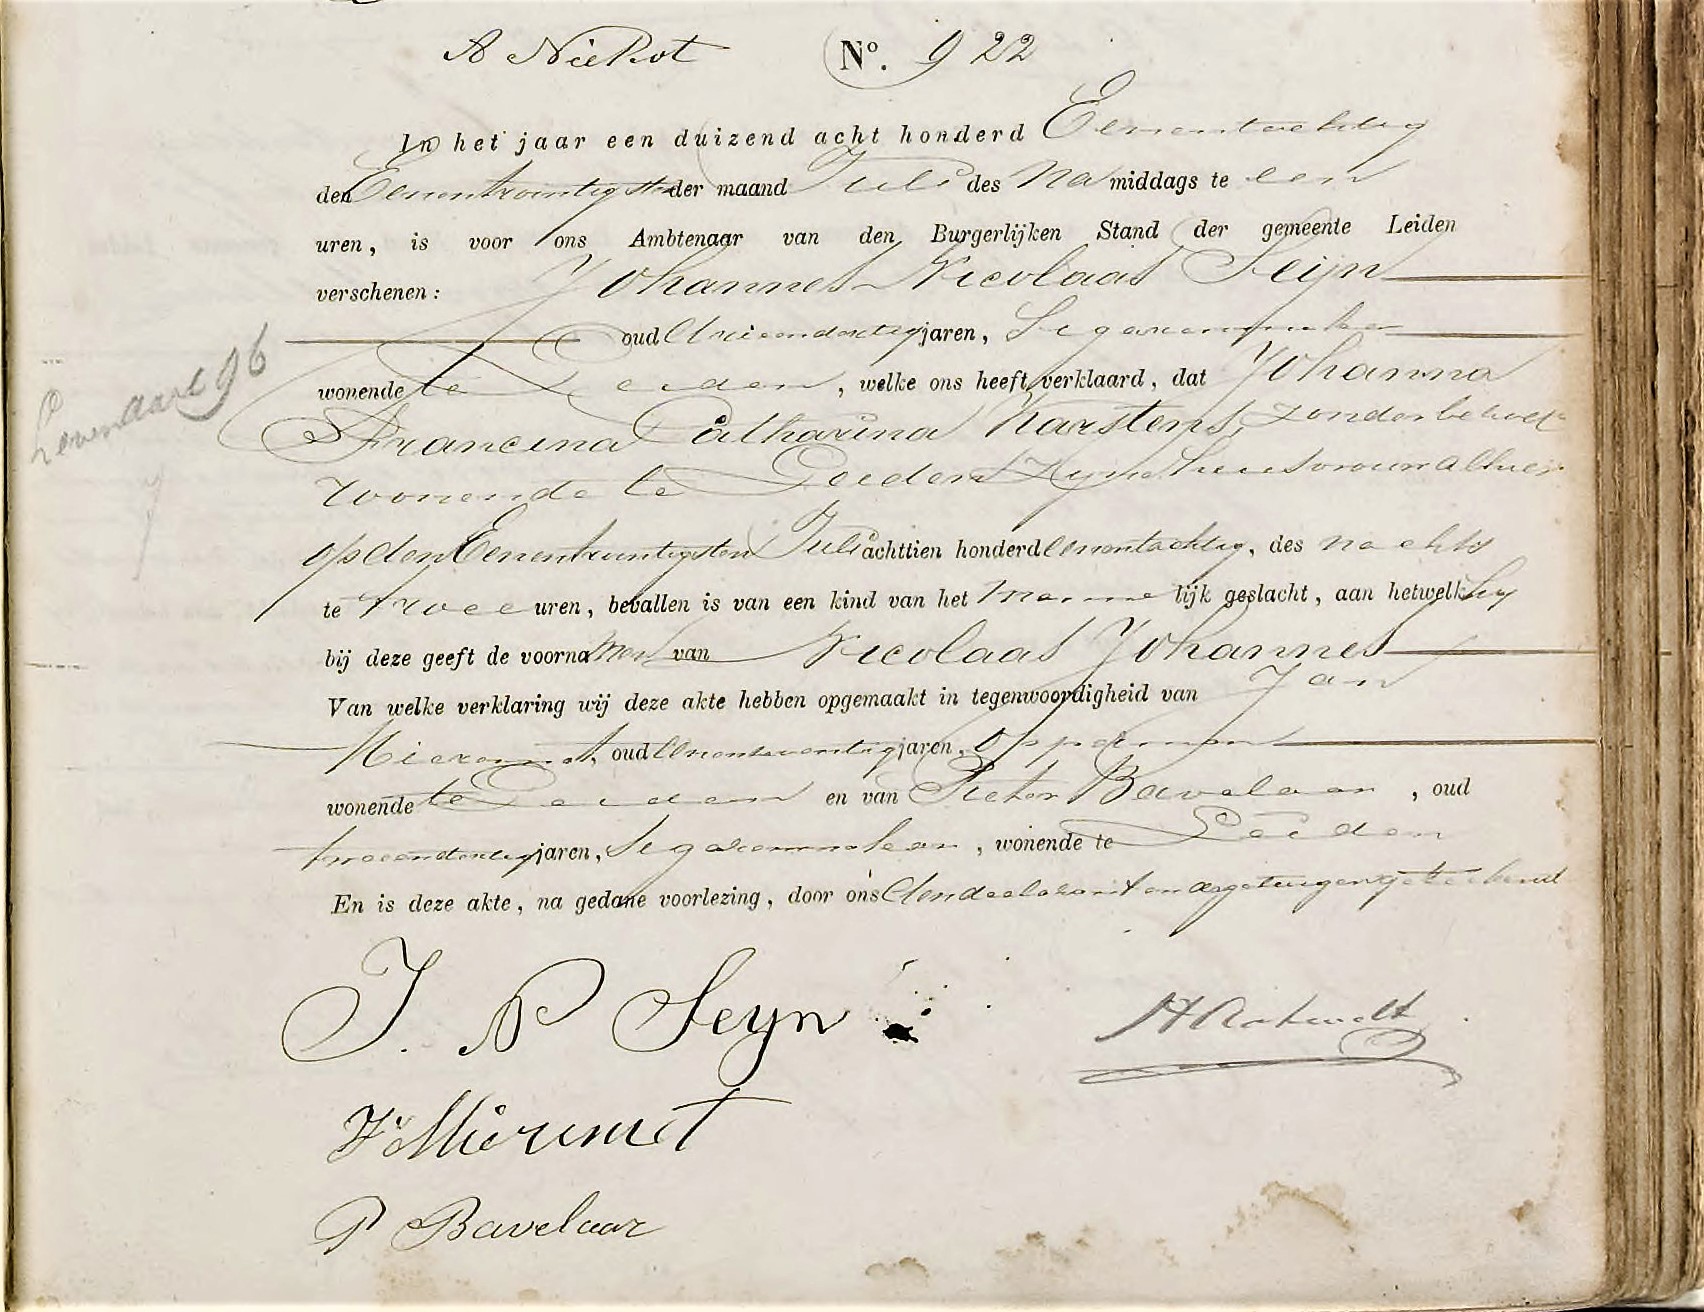 A Niekot Nº. 922
In het jaar een duizend acht honderd Eenentachtig
den Eenentwintigsten der maand Juli des Namiddags te een
uren, is voor ons Ambtenaar van den Burgerlijken Stand der gemeente Leiden
verschenen: Johannes Nicolaas Seijn
oud drieendertig jaren, Segarenmaker
wonende te Leiden, welke ons heeft verklaard, dat Johanna
Francina Catharina Karstens, zonder beroep
wonende te Leiden Zijne huisvrouw alhier
op den Eenentwintigsten Juli achttien honderd eenentachtig, des nachts
te twee uren, bevallen is van een kind van het mannelijk geslacht, aan hetwelk hij
bij deze geeft de voornamen van Nicolaas Johannes
Van welke verklaring wij deze akte hebben opgemaakt in tegenwoordigheid van Jan
Mieremet, oud eenenzeventig jaren, Opperman
wonende te Leiden en van Pieter Bavelaar, oud
tweeendertig jaren, Segarenmaker, wonende te Leiden
En is deze akte, na gedane voorlezing, door ons den declarant en de getuigen geteekend
J. N Seyn
J Mieremet
P Bavelaar